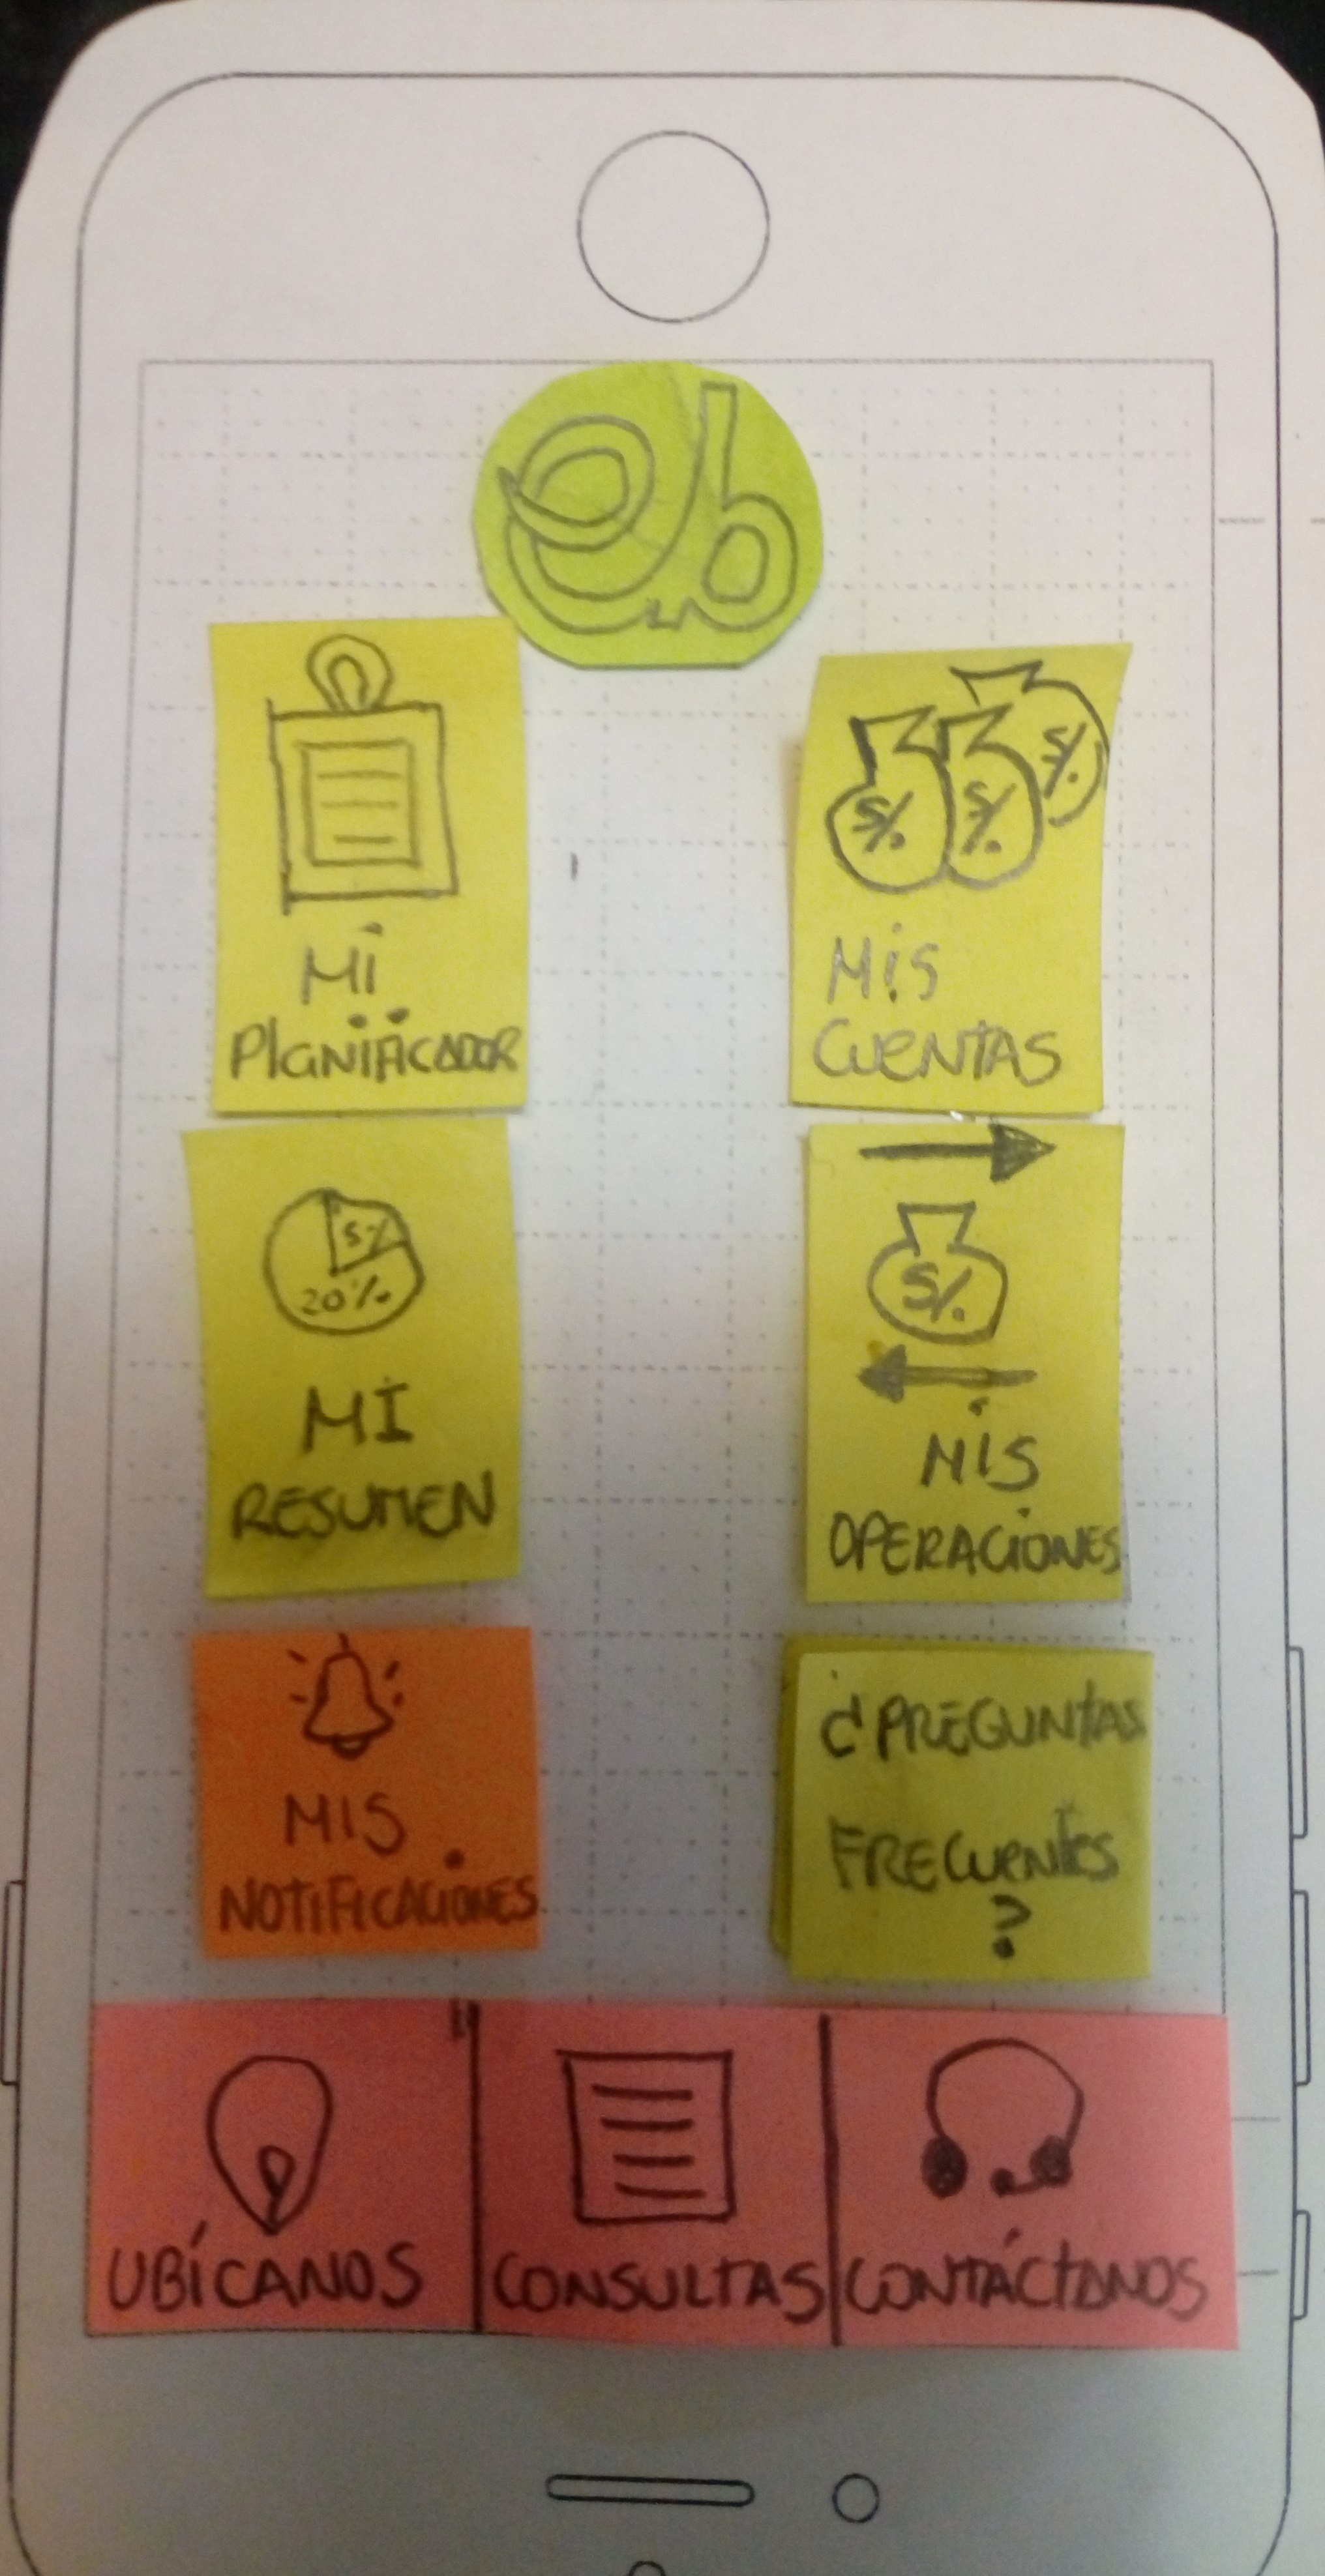 eb
MI
PlaNIFICADOR
S/.
S/.
S/.
MIS
CUENTAS
5%
20%
MI
RESUMEN
S/.
MIS
OPERACIONES
MIS
NOTIFICACIONES
¿PREGUNTAS
FRECUENTES
?
UBÍCANOS
CONSULTAS
CONTÁCTANOS